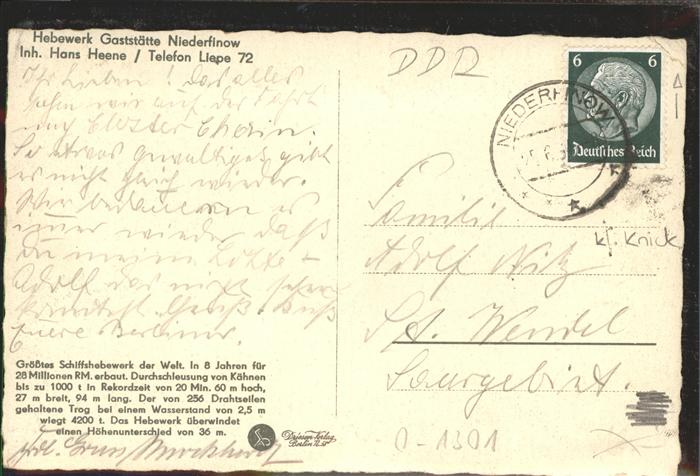 Hebewerk Gaststätte Niederfinow
Inh. Hans Heene / Telefon Liepe 72
Ihr Lieben! Das alles
sahen wir auf der Fahrt
nach Kloster Chorin.
So etwas gewaltiges gibt
es nicht gleich wieder.
Wir bedauern es
immer wieder daß
Du meine Lotte –
Adolf das nicht sehen
konntest. Gruß. Kuß
Eure Berliner.
Größtes Schiffshebewerk der Welt. In 8 Jahren für
28 Millionen RM. erbaut. Durchschleusung von Kähnen
bis zu 1000 t in Rekordzeit von 20 Min. 60 m hoch,
27 m breit, 94 m lang. Der von 256 Drahtseilen
gehaltene Trog bei einem Wasserstand von 2,5 m
wiegt 4200 t. Das Hebewerk überwindet
einen Höhenunterschied von 36 m.
Driesen-Verlag
Berlin
DDR
6 6
Deutsches Reich
NIEDERFINOW
kl. Knick
Familie
Adolf Nitz
St. Wendel
Saargebiet.
0-1301